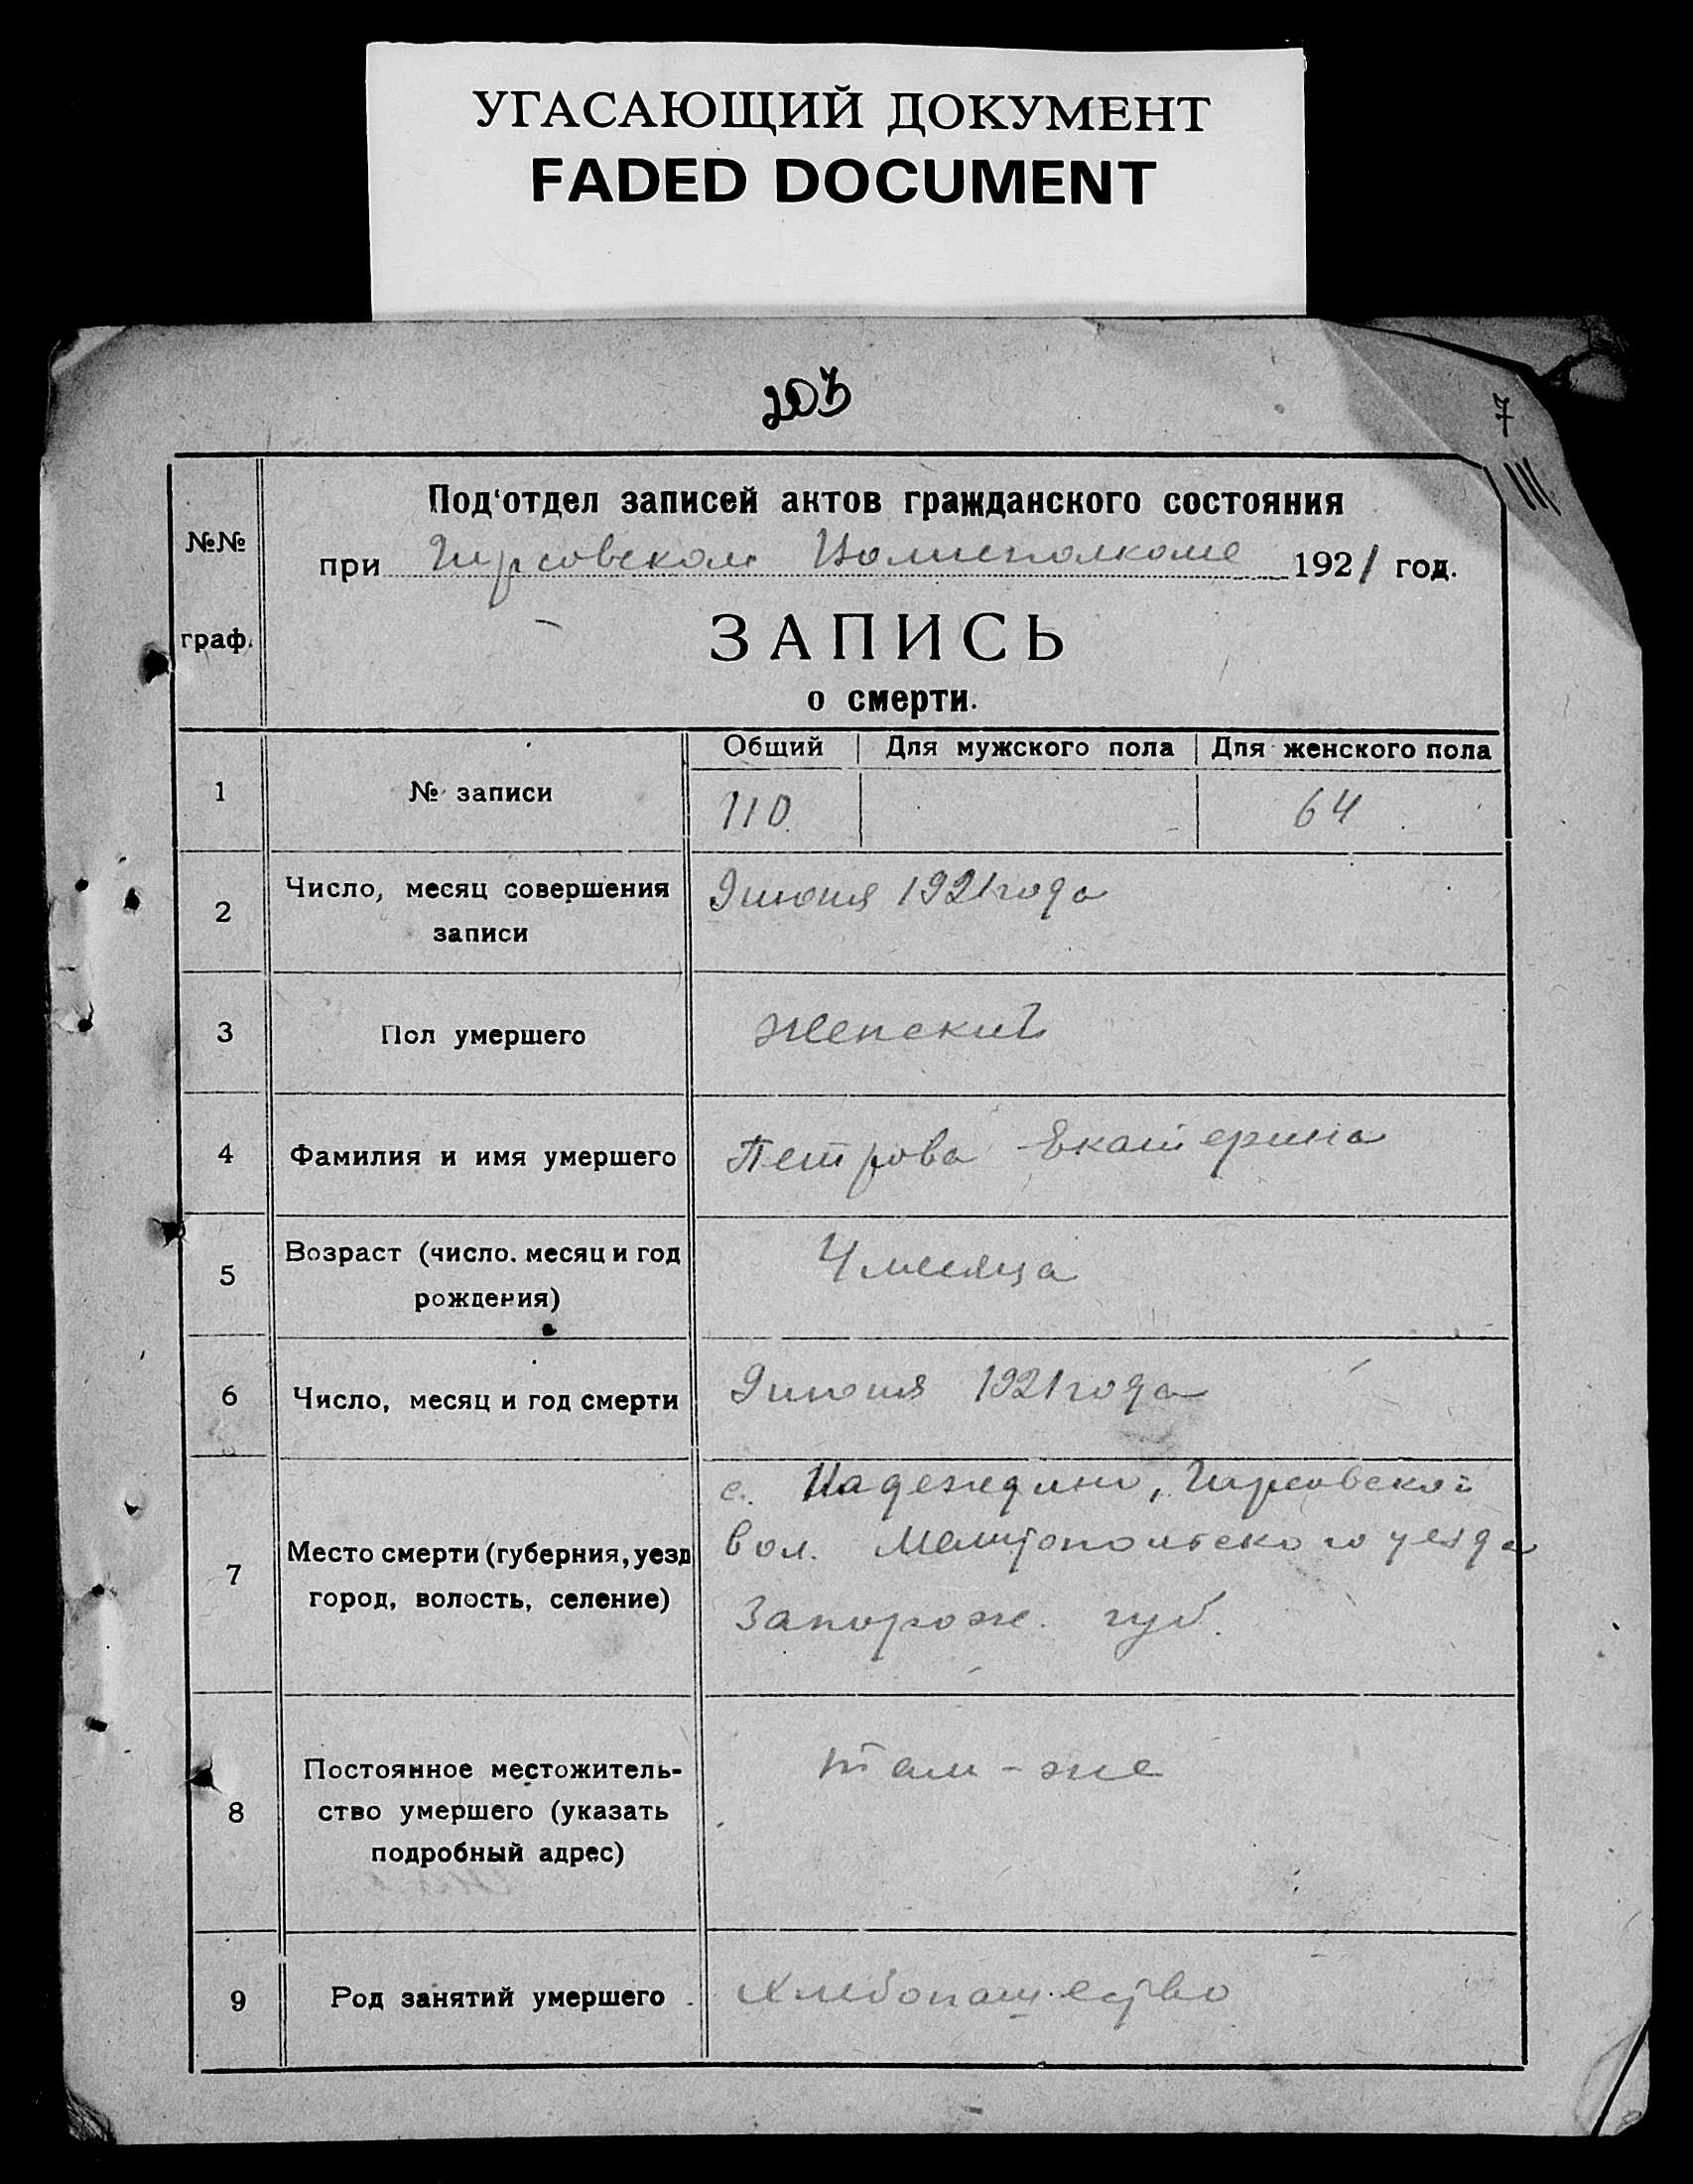 УГАСАЮЩИЙ ДОКУМЕНТ
FADED DOCUMENT
203
7
№№
граф.
Под'отдел записей актов гражданского состояния
при Гирсовском Волисполкоме 1921 год.
ЗАПИСЬ
о смерти.
Общий Для мужского пола Для женского пола
1 № записи 110 64
2 Число, месяц совершения
записи
9 июня 1921 года
3 Пол умершего Женский
4 Фамилия и имя умершего Петрова Екатерина
5 Возраст (число, месяц и год
рождения)
4 месяца
6 Число, месяц и год смерти 9 июня 1921 года
7 Место смерти (губерния, уезд
город, волость, селение)
с. Надеждино, Гирсовской
вол. Мелитопольского уезда
Запорож. губ.
8 Постоянное местожитель-
ство умершего (указать
подробный адрес)
там-же
9 Род занятий умершего Хлебопашество